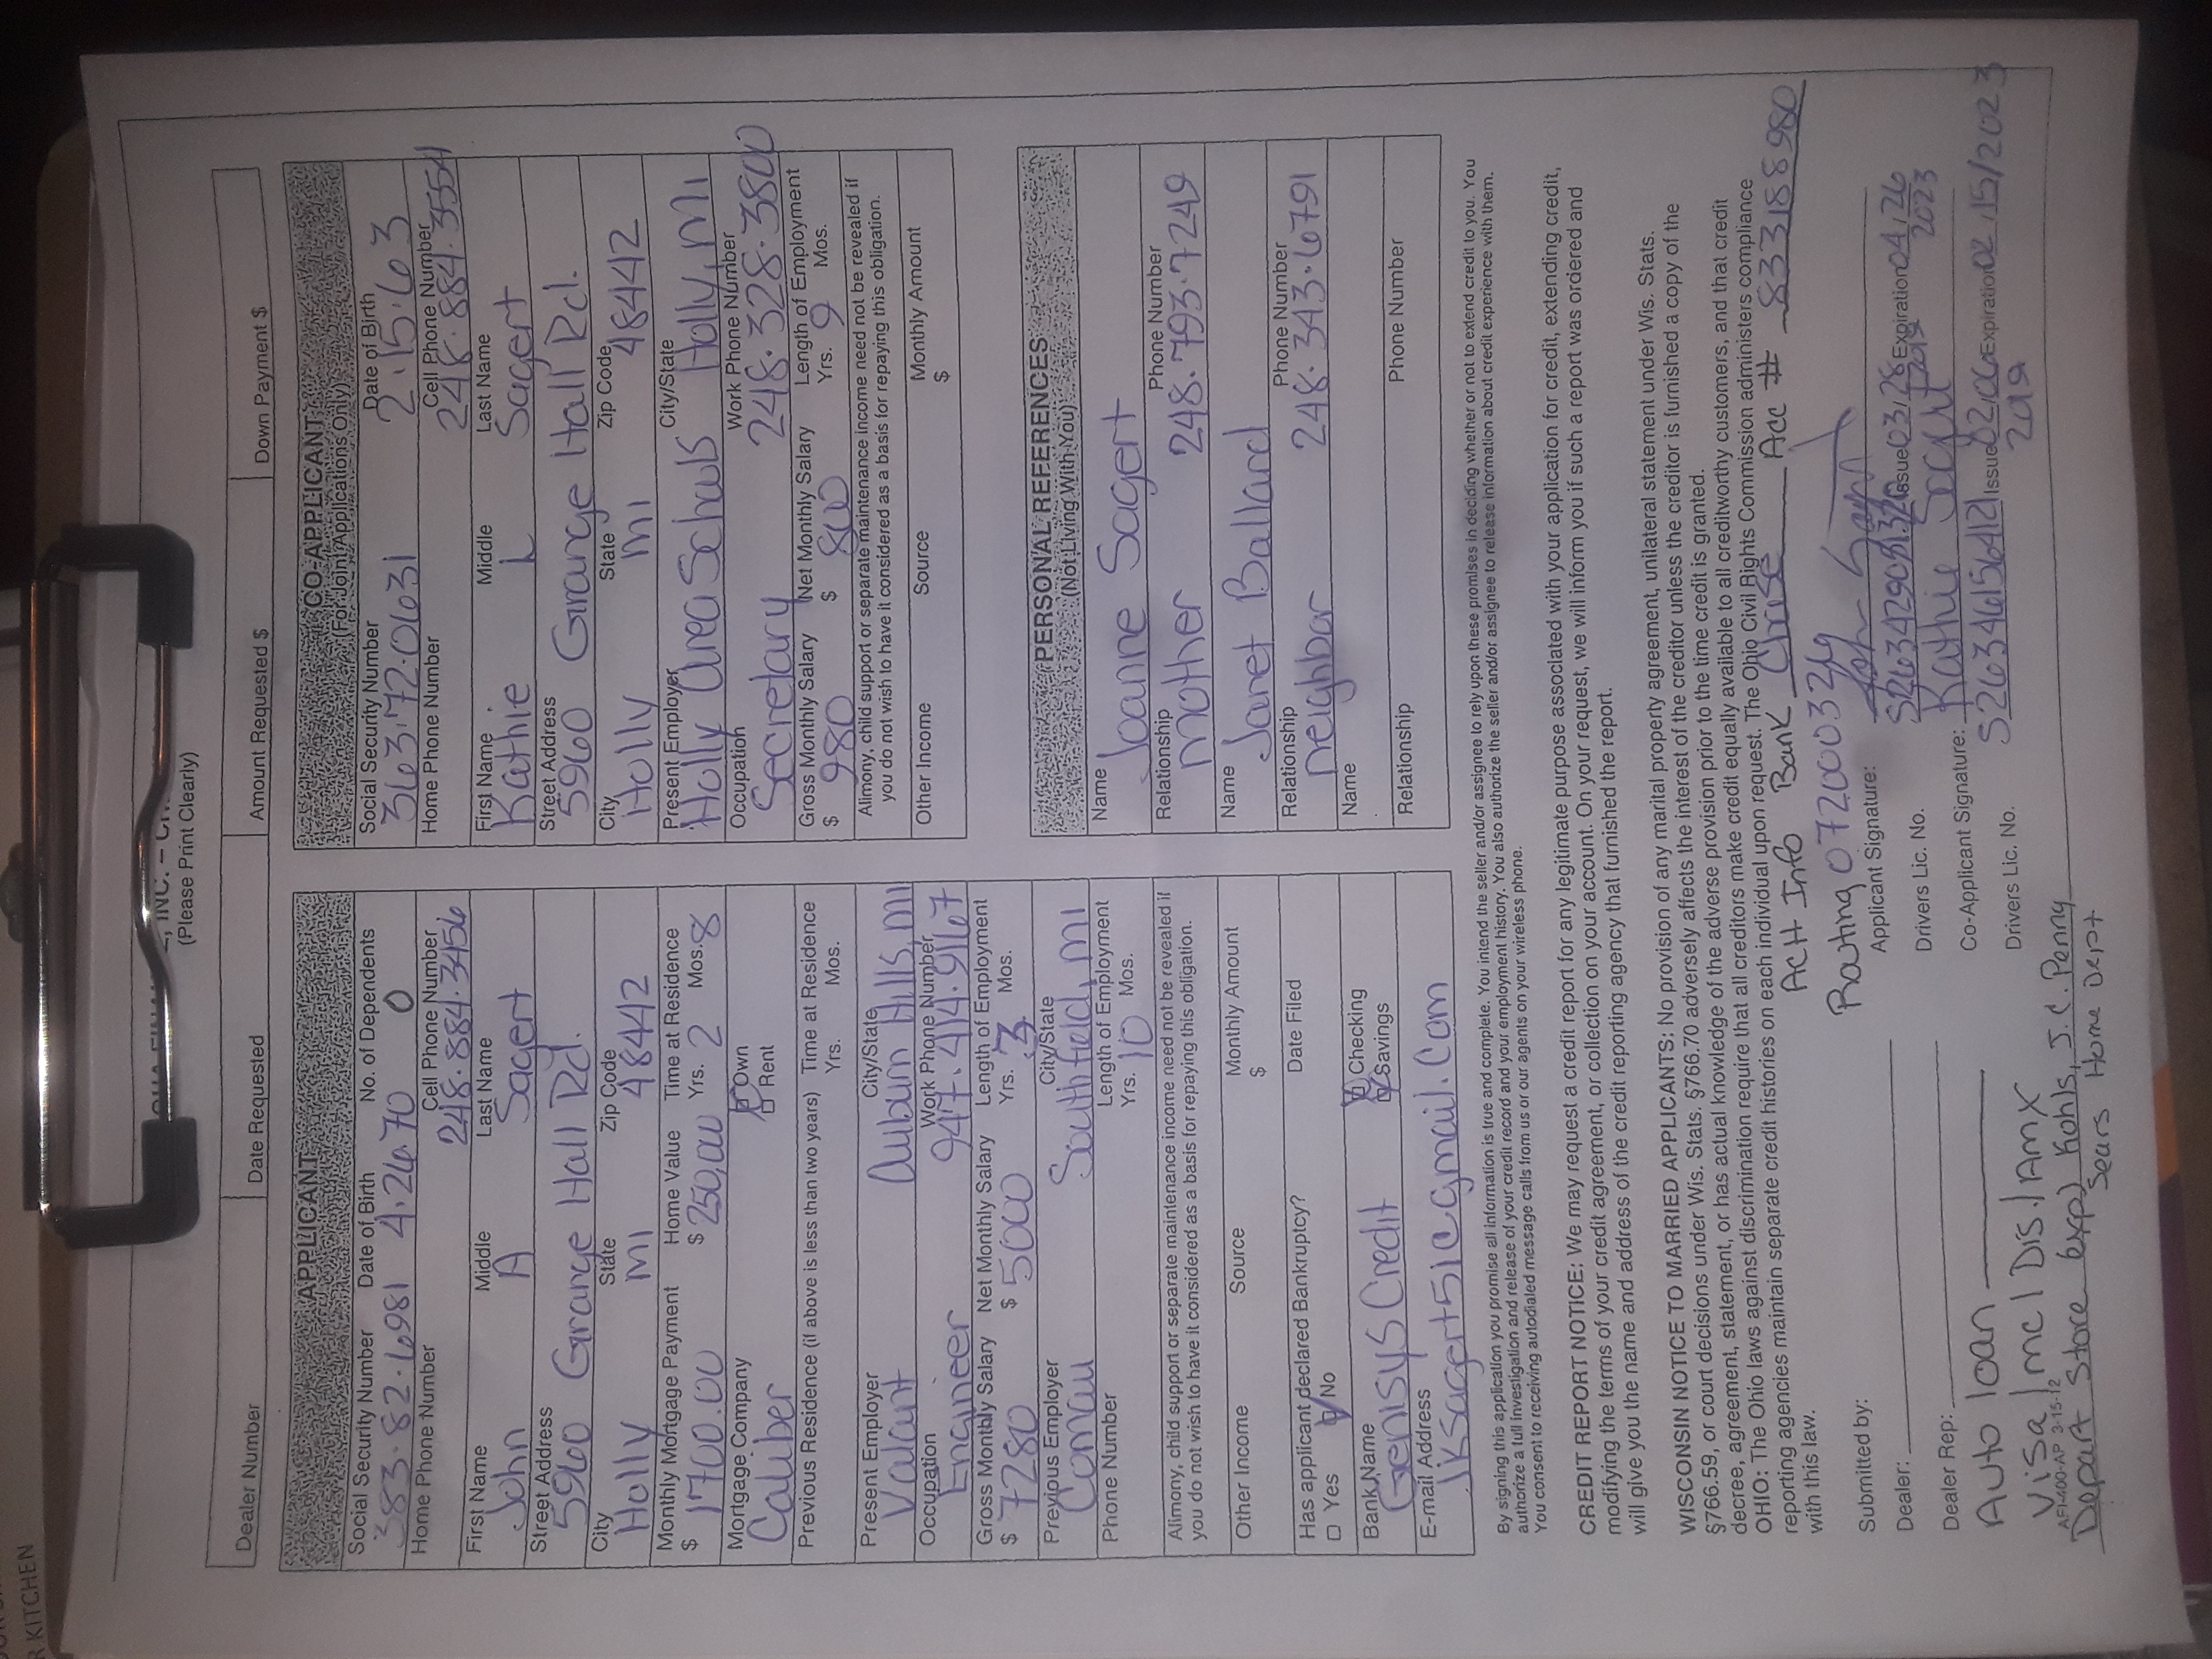 , INC. – C
(Please Print Clearly)
Dealer Number Date Requested Amount Requested $ Down Payment $
APPLICANT
Social Security Number Date of Birth No. of Dependents
[redacted] [redacted] 0
Home Phone Number Cell Phone Number
248.884.3456
First Name Middle Last Name
John A Sagert
Street Address
5960 Grange Hall Rd.
City State Zip Code
Holly MI 48442
Monthly Mortgage Payment Home Value Time at Residence
$ 1700.00 $ 250,000 Yrs. 2 Mos. 8
Mortgage Company Own
Caliber Rent
Previous Residence (if above is less than two years) Time at Residence
Yrs. Mos.
Present Employer City/State
Valiant Auburn Hills, MI
Occupation Work Phone Number
Engineer 947.414.9167
Gross Monthly Salary Net Monthly Salary Length of Employment
$ 7280 $ 5000 Yrs. 3 Mos.
Previous Employer City/State
Comau Southfield, MI
Phone Number Length of Employment
Yrs. 10 Mos.
Alimony, child support or separate maintenance income need not be revealed if
you do not wish to have it considered as a basis for repaying this obligation.
Other Income Source Monthly Amount
$
Has applicant declared Bankruptcy? Date Filed
Yes No
Bank Name Checking
Genisys Credit Savings
E-mail Address
jksagert51@gmail.com
CO-APPLICANT
(For Joint Applications Only)
Social Security Number Date of Birth
[redacted] [redacted]
Home Phone Number Cell Phone Number
248.884.3554
First Name Middle Last Name
Kathie L Sagert
Street Address
5960 Grange Hall Rd.
City State Zip Code
Holly MI 48442
Present Employer City/State
Holly Area Schools Holly, MI
Occupation Work Phone Number
Secretary 248.328.3800
Gross Monthly Salary Net Monthly Salary Length of Employment
$ 980 $ 800 Yrs. 9 Mos.
Alimony, child support or separate maintenance income need not be revealed if
you do not wish to have it considered as a basis for repaying this obligation.
Other Income Source Monthly Amount
$
PERSONAL REFERENCES
(Not Living With You)
Name Phone Number
Joanne Sagert
Relationship 248.793.7249
mother
Name Phone Number
Janet Ballard
Relationship 248.343.6791
neighbor
Name Phone Number
Relationship
By signing this application you promise all information is true and complete. You intend the seller and/or assignee to rely upon these promises in deciding whether or not to extend credit to you. You
authorize a full investigation and release of your credit record and your employment history. You also authorize the seller and/or assignee to release information about credit experience with them.
You consent to receiving autodialed message calls from us or our agents on your wireless phone.
CREDIT REPORT NOTICE: We may request a credit report for any legitimate purpose associated with your application for credit, extending credit,
modifying the terms of your credit agreement, or collection on your account. On your request, we will inform you if such a report was ordered and
will give you the name and address of the credit reporting agency that furnished the report.
WISCONSIN NOTICE TO MARRIED APPLICANTS: No provision of any marital property agreement, unilateral statement under Wis. Stats.
§766.59, or court decisions under Wis. Stats. §766.70 adversely affects the interest of the creditor unless the creditor is furnished a copy of the
decree, agreement, statement, or has actual knowledge of the adverse provision prior to the time credit is granted.
OHIO: The Ohio laws against discrimination require that all creditors make credit equally available to all creditworthy customers, and that credit
reporting agencies maintain separate credit histories on each individual upon request. The Ohio Civil Rights Commission administers compliance
with this law.
ACH Info Bank Chase Acc # [redacted]
Routing [redacted]
Submitted by: Applicant Signature: John Sagert
Dealer: Drivers Lic. No. [redacted] Issue [redacted] Expiration [redacted]
Dealer Rep: Co-Applicant Signature: Kathie Sagert
Drivers Lic. No. [redacted] Issue [redacted] Expiration [redacted]
Auto loan
Visa / mc / Dis. / Amx
AFI-400-AP 3-15-12
Depart Store (exp) Kohls, J.C. Penny
Sears Home Dept